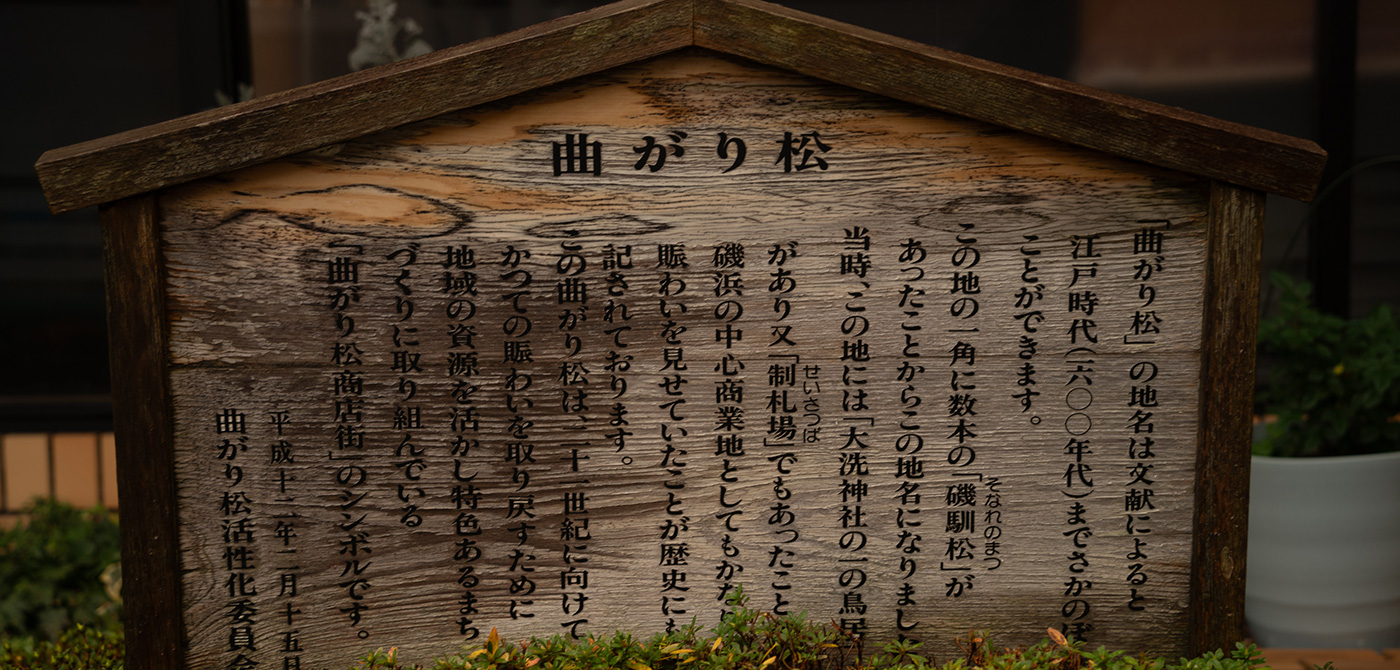 曲がり松
「曲がり松」の地名は文献によると
江戸時代(一六〇〇年代)までさかのぼ
ことができます。
この地の一角に数本の「磯馴松」が
そなれのまつ
あったことからこの地名になりまし
当時、この地には「大洗神社の一の鳥居
があり又「制札場」でもあったこと
せいさつば
磯浜の中心商業地としてもかな
賑わいを見せていたことが歴史に
記されております。
この曲がり松は、二十一世紀に向けて
かつての賑わいを取り戻すために
地域の資源を活かし特色あるまち
づくりに取り組んでいる
「曲がり松商店街」のシンボルです。
平成十二年二月十五日
曲がり松活性化委員会